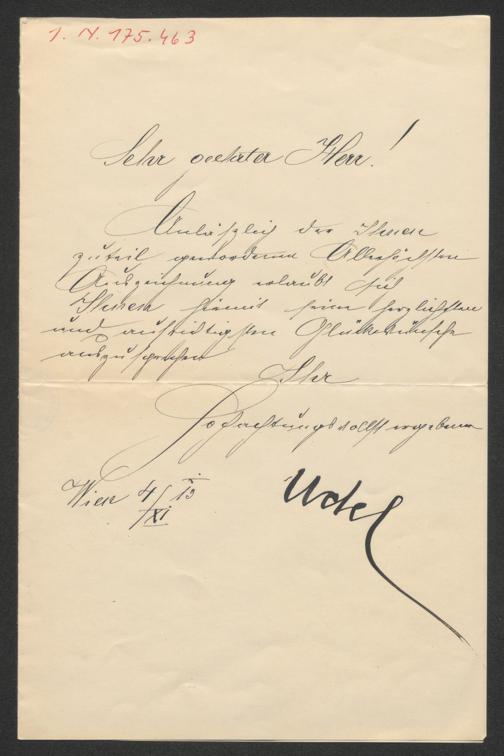 J. N. 175.463
Sehr geehrter Herr!
Anläßlich der Ihnen
zuteil gewordenen Allerhöchsten
Auszeichnung erlaubt sich
Ihnen hiemit seine herzlichsten
und aufrichtigsten Glückwünsche
auszusprechen
Ihr
Hochachtungsvollst ergebener
Wien 4/XI
Udel